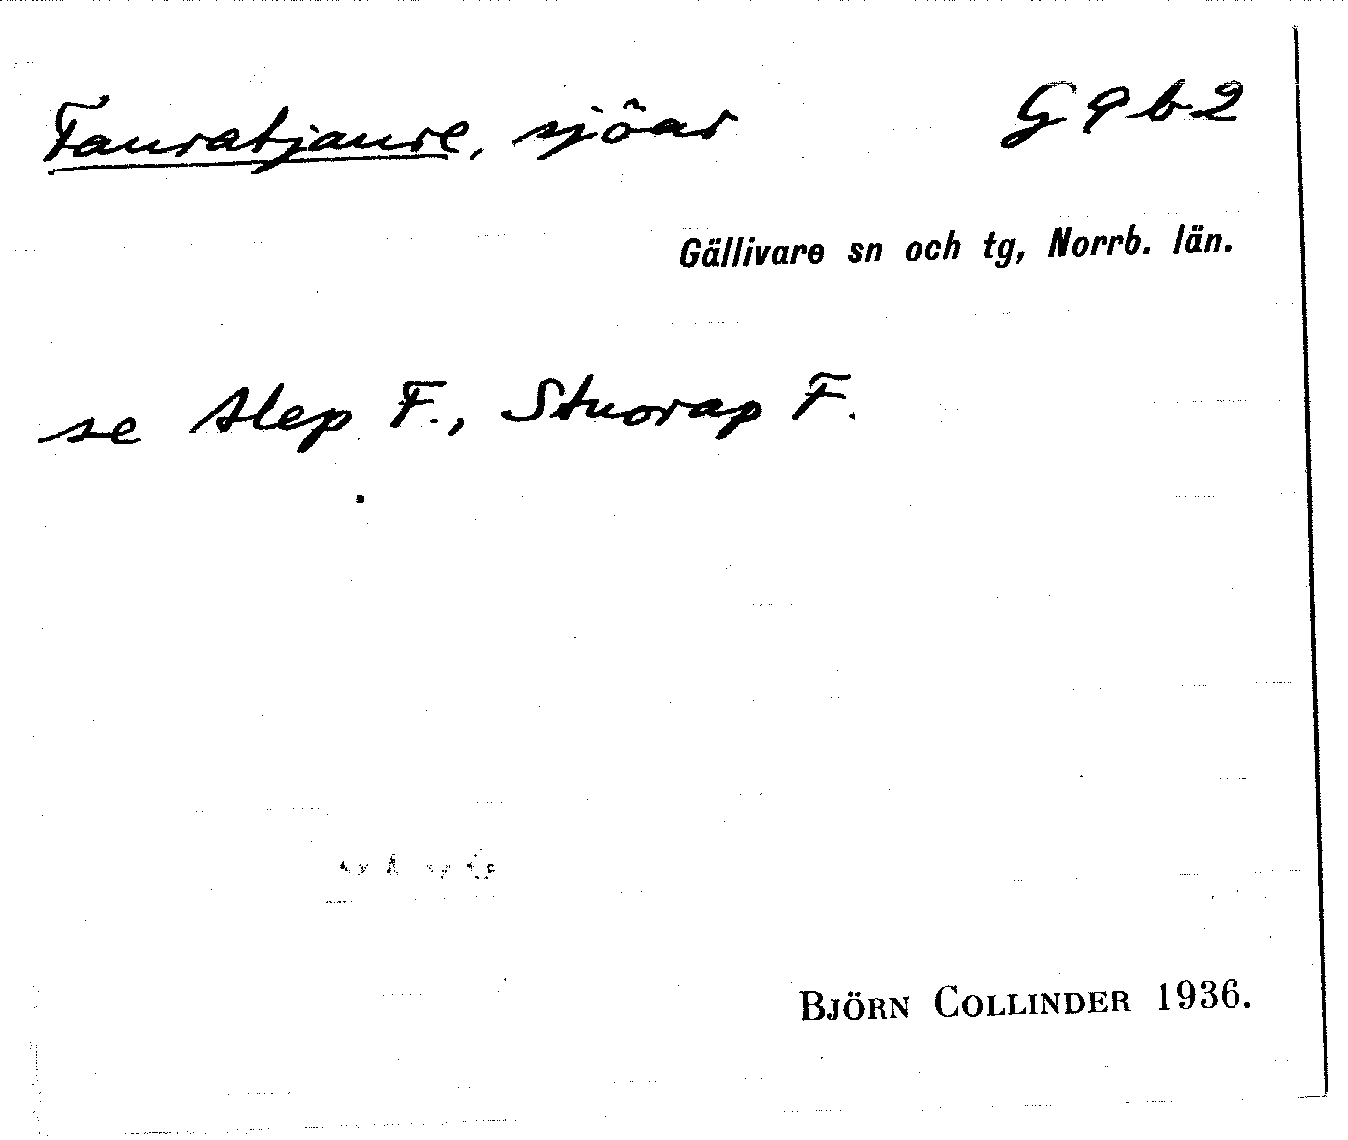 Fauratjaure, sjöar G 9 b 2
Gällivare sn och tg, Norrb. län.
se Alep F., Stuorap F.
BJÖRN COLLINDER 1936.